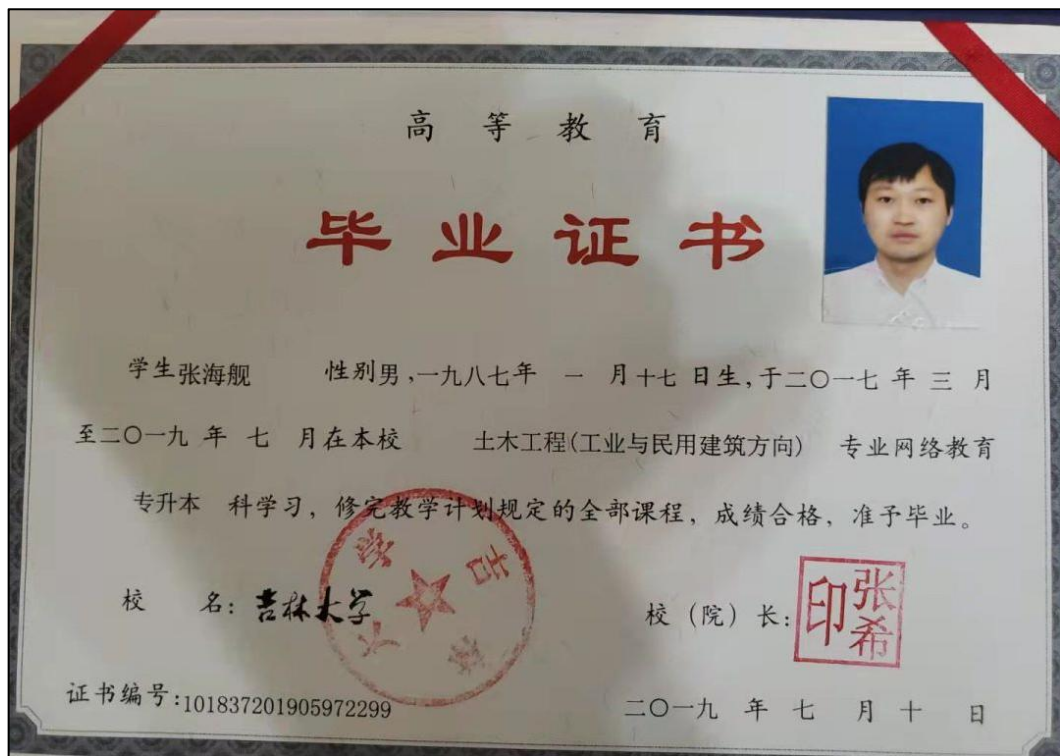 高等教育
毕业证书
学生张海舰 性别男,一九八七年 一 月十七日生,于二〇一七年 三 月
至二〇一九 年 七 月在本校 土木工程(工业与民用建筑方向) 专业网络教育
专升本 科学习，修完教学计划规定的全部课程，成绩合格，准予毕业。
校 名: 吉林大学
吉林大学
校（院）长:
张希印
证书编号:101837201905972299
二〇一九 年 七 月 十 日